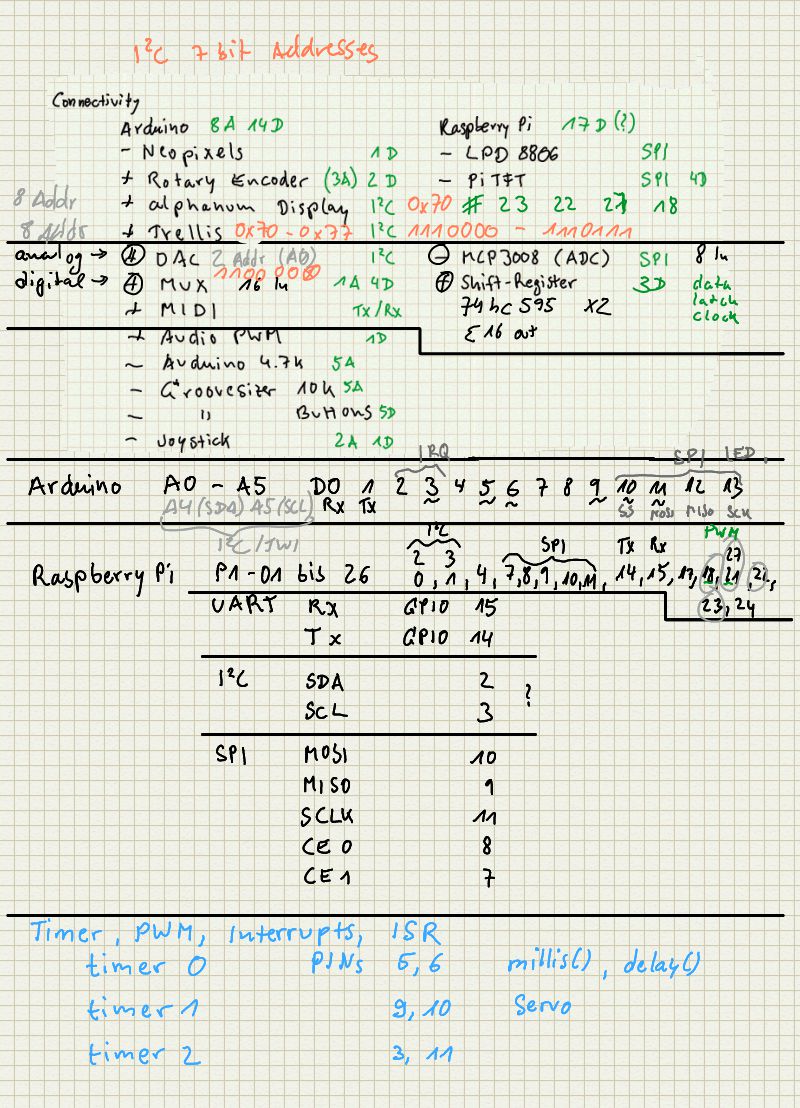 I²C 7 bit Addresses
Connectivity
Arduino 8A 14D
- Neopixels 1D
+ Rotary Encoder (3A) 2D
8 Addr + alphanum Display I²C 0x70
8 Addr + Trellis 0x70 - 0x77 I²C 1110000 - 1110111
analog → + DAC 2 Addr (A0) I²C
digital → + MUX 16 In 1A 4D
+ MIDI Tx/Rx
+ Audio PWM 1D
- Arduino 4.7k 5A
- Groovesizer 10k 5A
- " Buttons 5D
- Joystick 2A 1D
Raspberry Pi 17D (?)
- LPD 8806 SPI
- PiTFT SPI 4D
# 23 22 21 18
- MCP3008 (ADC) SPI 8 In
+ Shift-Register 3D data
74hc595 x2 latch
clock
Σ 16 out
IRQ SPI LED
Arduino A0 - A5 D0 1 2 3 4 5 6 7 8 9 10 11 12 13
A4(SDA) A5(SCL) Rx Tx SS MOSI MISO SCK
I²C/TWI I²C SPI Tx Rx PWM
2 3 27
Raspberry Pi P1-01 bis 26 0, 1, 4, 7, 8, 9, 10, 11, 14, 15, 17, 18, 21, 22,
23, 24
UART Rx GPIO 15
Tx GPIO 14
I²C SDA 2 ?
SCL 3
SPI MOSI 10
MISO 9
SCLK 11
CE0 8
CE1 7
Timer, PWM, Interrupts, ISR
timer 0 PINs 5, 6 millis(), delay()
timer 1 9, 10 Servo
timer 2 3, 11